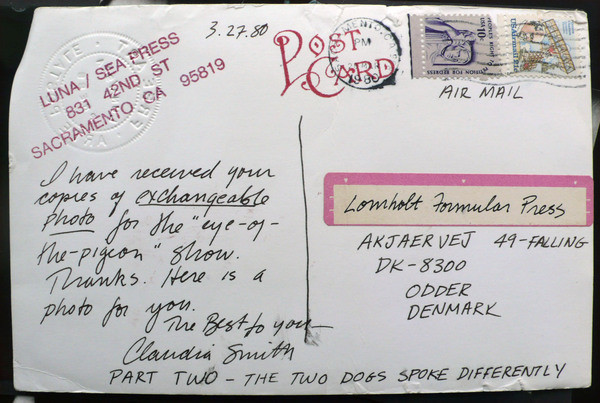 3.27.80
LUNA / SEA PRESS
831 42ND ST
SACRAMENTO CA 95819
POST
CARD
PM
1980
AIR MAIL
I have received your
copies of exchangeable
photo for the "eye-of-
the-pigeon" show.
Thanks. Here is a
photo for you.
The Best to you—
Claudia Smith
PART TWO – THE TWO DOGS SPOKE DIFFERENTLY
Lomholt Formular Press
AKJAERVEJ 49-FALLING
DK-8300
ODDER
DENMARK